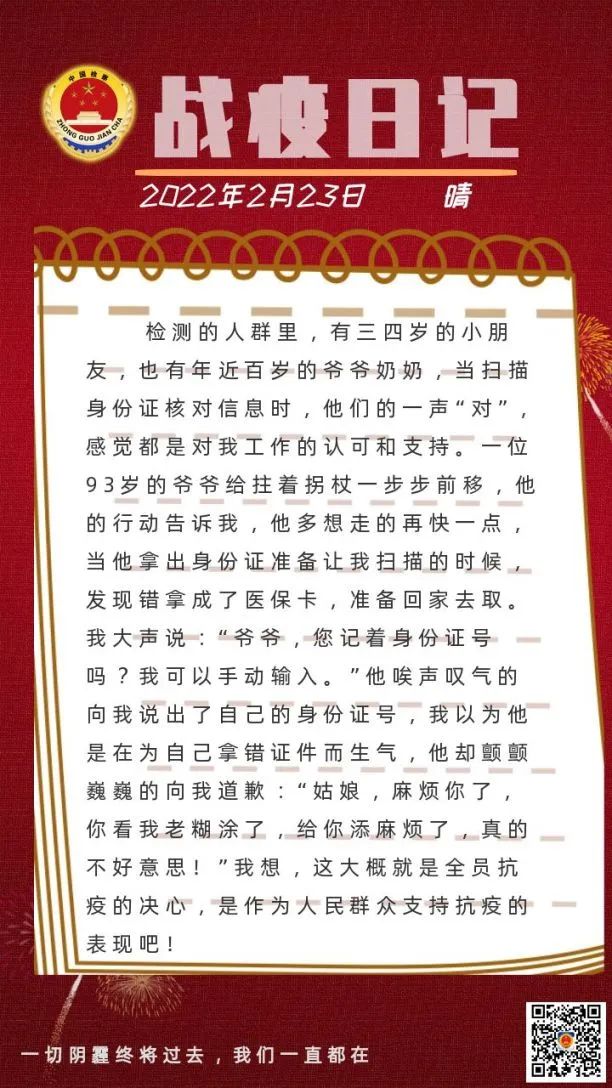 中国检察
ZHONG GUO JIAN CHA
战疫日记
2022年2月23日 晴
检测的人群里，有三四岁的小朋
友，也有年近百岁的爷爷奶奶，当扫描
身份证核对信息时，他们的一声“对”，
感觉都是对我工作的认可和支持。一位
93岁的爷爷给拄着拐杖一步步前移，他
的行动告诉我，他多想走的再快一点，
当他拿出身份证准备让我扫描的时候，
发现错拿成了医保卡，准备回家去取。
我大声说：“爷爷，您记着身份证号
吗？我可以手动输入。”他唉声叹气的
向我说出了自己的身份证号，我以为他
是在为自己拿错证件而生气，他却颤颤
巍巍的向我道歉：“姑娘，麻烦你了，
你看我老糊涂了，给你添麻烦了，真的
不好意思！”我想，这大概就是全员抗
疫的决心，是作为人民群众支持抗疫的
表现吧！
一切阴霾终将过去，我们一直都在